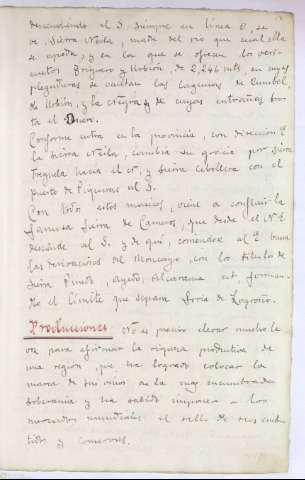 descendiendo al S. siempre en línea O, se
ve, Sierra Neila, madre del río que cual ella
se apoda; y en la que se ofrecen los veri-
cuetos Triguera y Urbión, de 2,246 mts, en cuyos
plegaduras se ocultan las lagunas de
de Urbión, y la Negra, y de cuyas entrañas bro-
ta el Duero.
Conforme entra en la provincia, con dirección E
la Sierra Neila, cambia su gracia por Sierra
hacia el N, y Sierra Cebollera con el
puerto de Piqueras al S.
Con todos estos macizos, viene a confluir la
famosa Sierra de Cameros, que desde el N.E
desciende al S. y de aquí, comienzan al E.
las derivaciones del Moncayo, con los títulos de
Sierra Alcarama et. forman-
do el límite que separa Soria de Logroño.
Producciones No es preciso elevar mucho la
voz para afirmar la riqueza productiva de
una región, que ha logrado colocar la
marca de sus vinos en la muy encumbrada
soberanía y ha sabido imponer a los
mercados mundiales el sello de sus embu-
tidos y conservas.